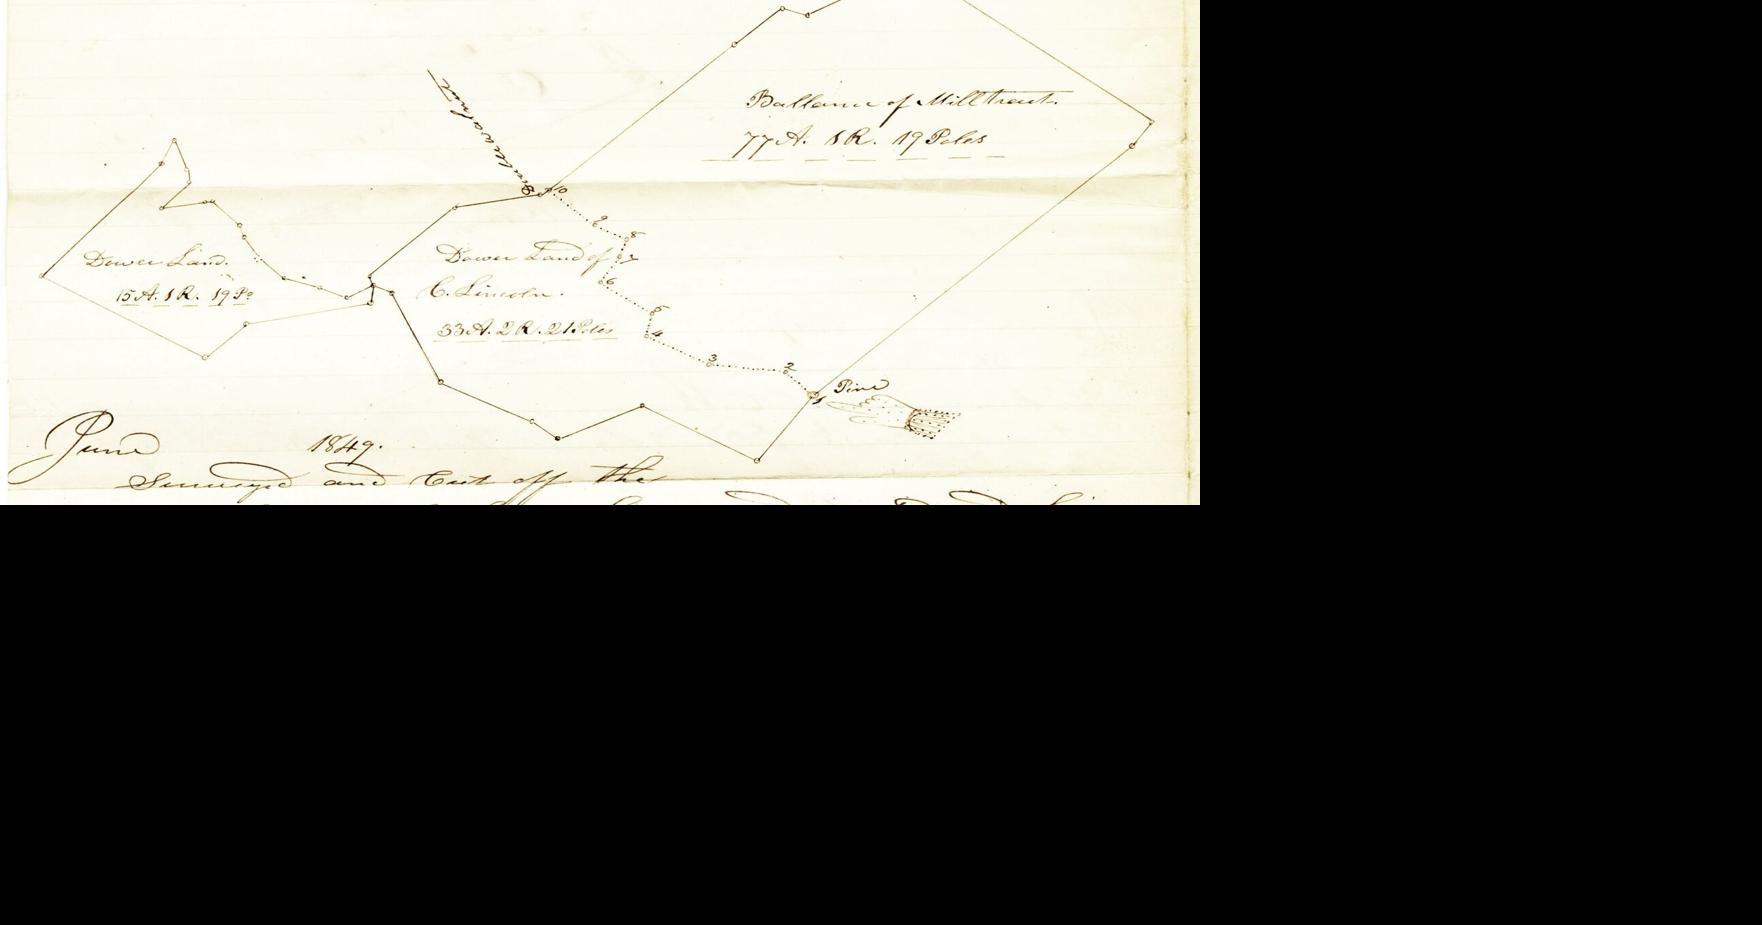 Ballance of Mill tract.
77 A. 1 R. 19 Poles
10
9
8
7
6
5
4
3
2
1
Dower Land.
15 A. 1 R. 19 Po
Dower Land of
C. Lincoln.
33 A. 2 R. 21 Poles
Pine
June 1849.
Surveyed and Cut off the